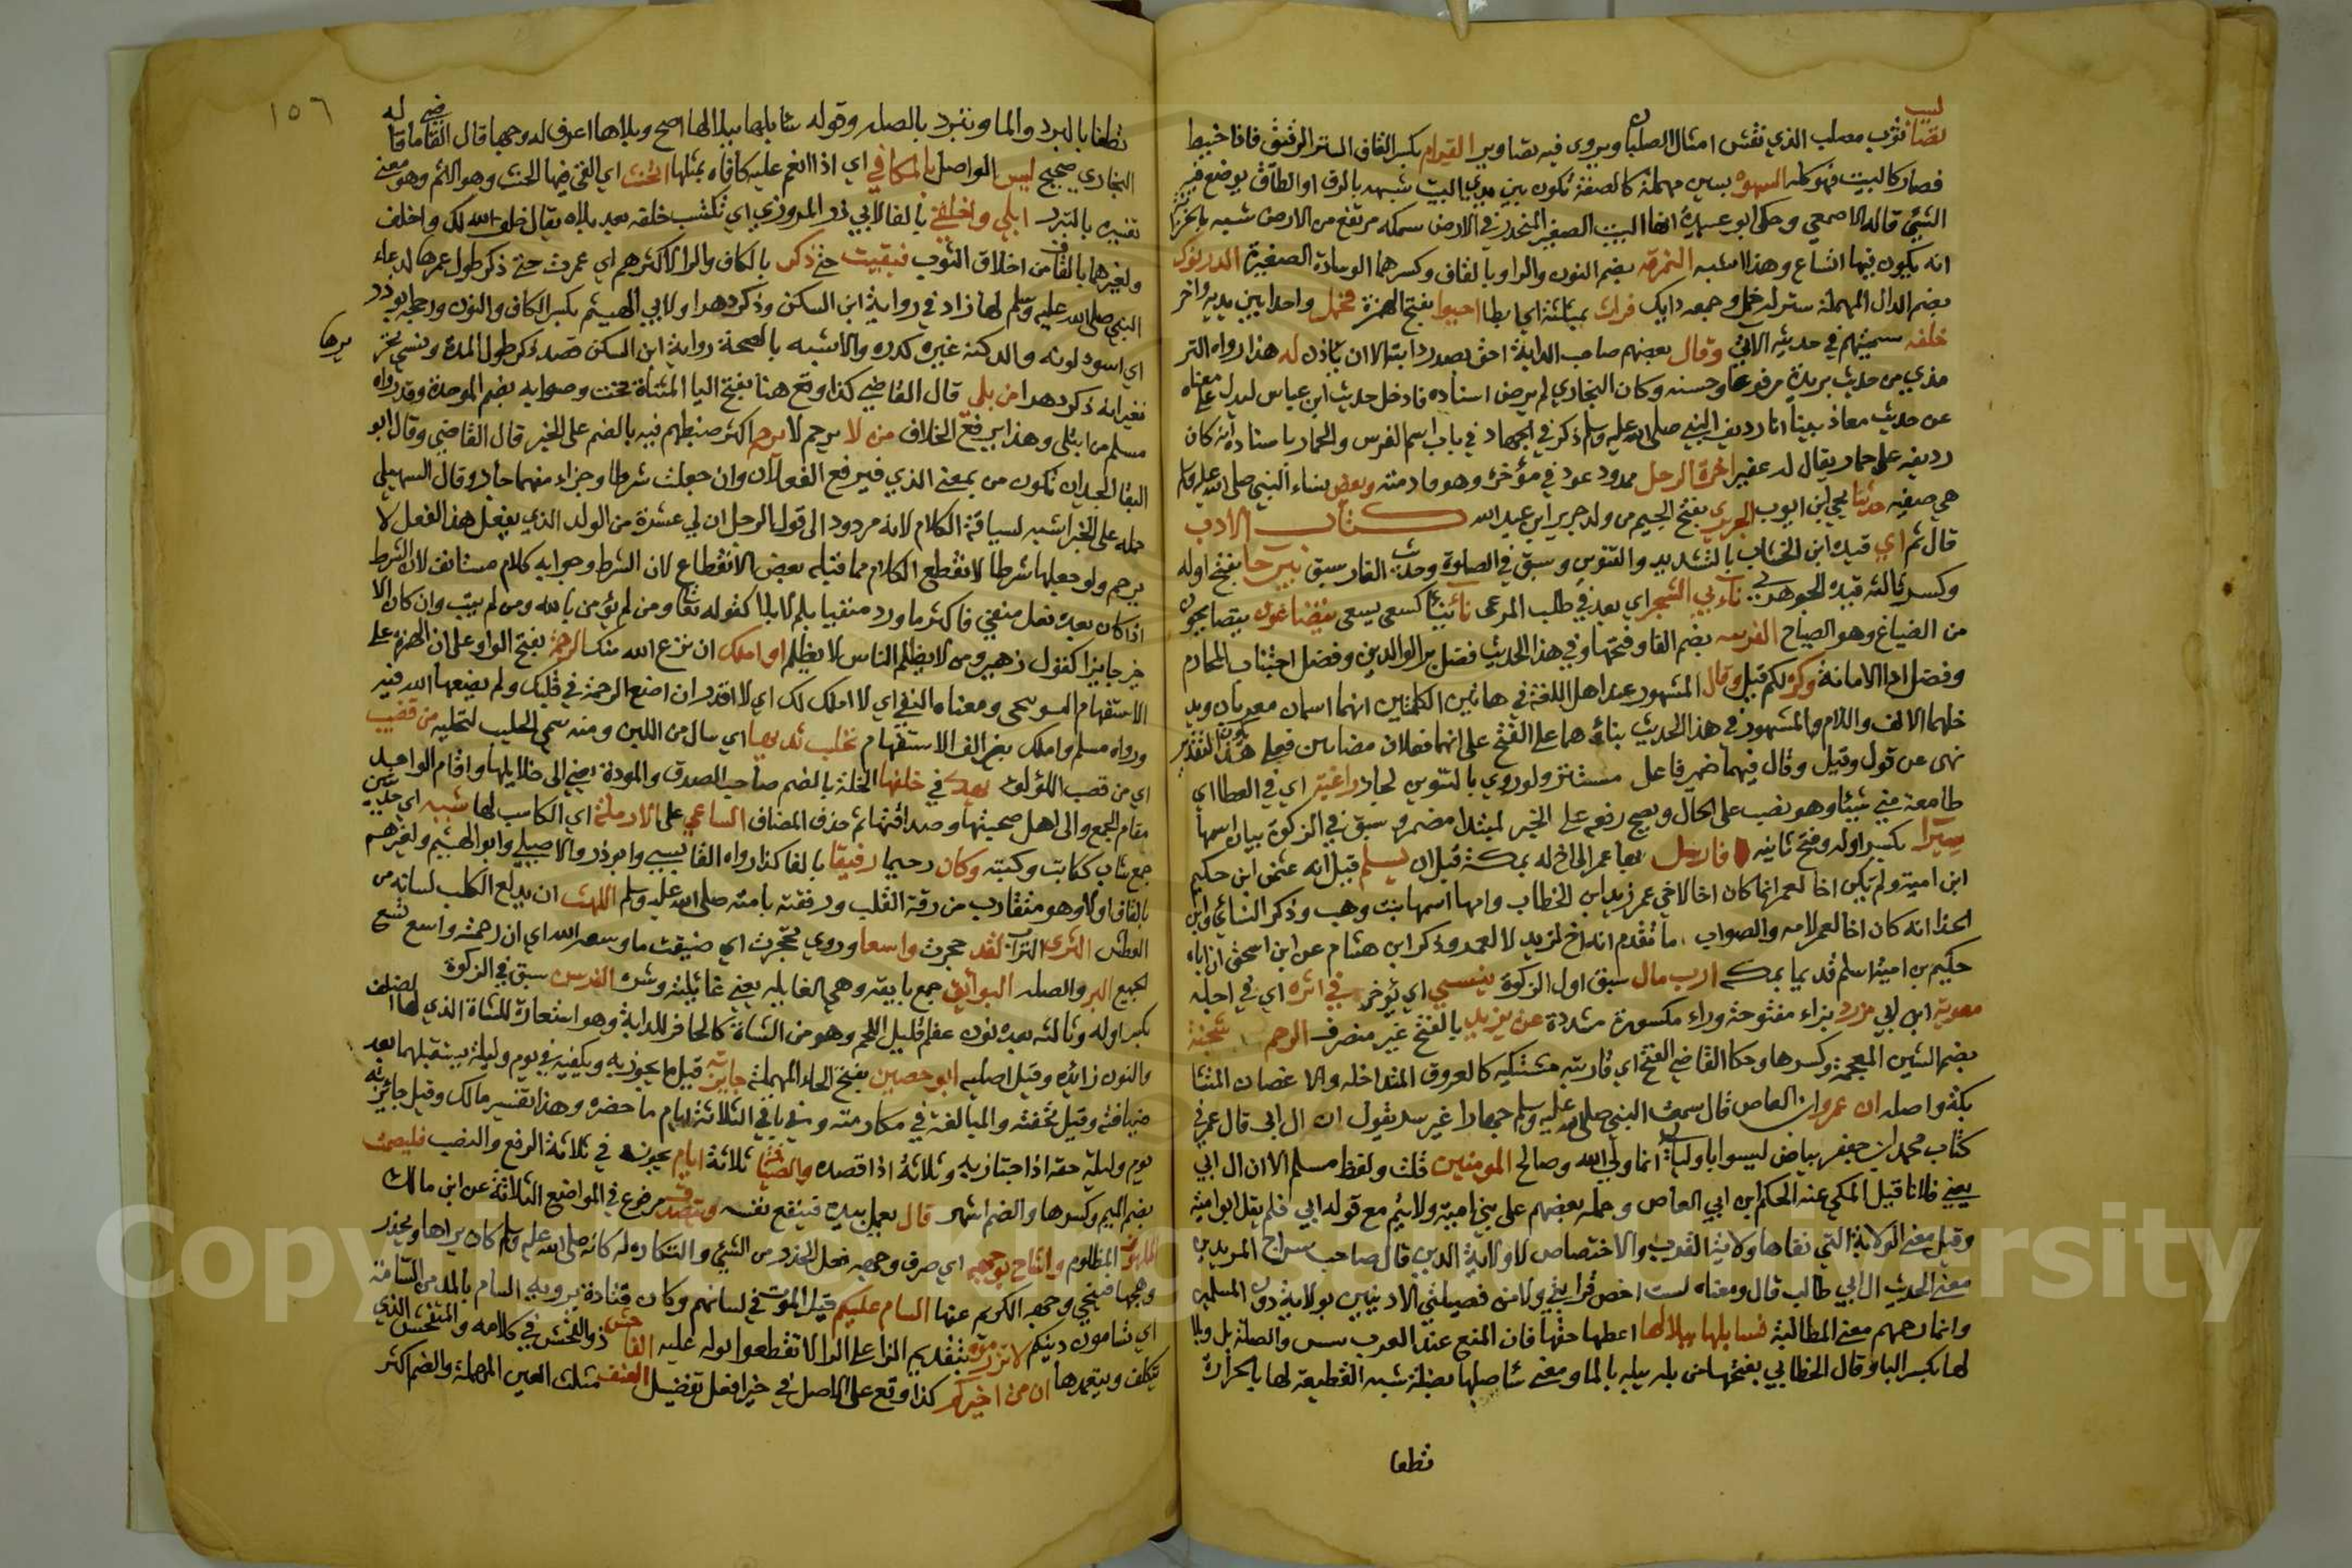 تصاليب ثوب مصلب الذي نقش امثال الصلبان ويروى فيه تصاوير القرام بكسر القاف الستر الرقيق فاذا خيط
فصار كالبيت فهو كلة السهوة بسين مهملة كالصفة تكون بين يدي البيت شبهه بالرف او الطاق يوضع فيه
الشيء قاله الاصمعي وحكى ابو عبيدة انها البيت الصغير المنحدر في الارض سمكه مرتفع من الارض شبيه بالخزانة
انه يكون فيها اتساع وهذا اشبه النمرقة بضم النون والراء وبالقاف وكسرهما الوسادة الصغيرة الدرنوك
بضم الدال المهملة ستر له خمل وجمعه درانك فراث بمثلثة اي ابطا احبوا بفتح الهمزة فحمل واحدا بين يديه واخر
خلفه سميتهم في حديثه الاتي وقال بعضهم صاحب الدابة احق بصدر دابته الا ان ياذن له هذا رواه التر
مذي من حديث بريدة مرفوعا وحسنه وكان البخاري لم يرض اسناده فادخل حديث ابن عباس ليدل على معناه
عن حديث معاذ بينا انا رديف النبي صلى الله عليه وسلم ذكر في الجهاد في باب اسم الفرس والحمار باسناده انه كان
رديفه على حمار يقال له عفير اخرة الرحل ممدود عود في مؤخره وهو قادمته وبعض نساء النبي صلى الله عليه وسلم
هي صفية حدثنا يحيى ابن ايوب الجريري بفتح الجيم من ولد جرير ابن عبد الله كتاب الادب
قال ثم اي قيده ابن الخشاب بالتشديد والتنوين وسبق في الصلوة وحديث الغار سبق بيرحا بفتح اوله
وكسر ثالثه قيده الجوهري ناء بي الشجر اي بعد في طلب المرعى كسعى يسعى يتضاغون يتصايحون
من الضياغ وهو الصياح الفرجه بضم الفا وفتحها وفي هذا الحديث فضل بر الوالدين وفضل اجتناب المحارم
وفضل ادا الامانة وكره لكم قيل وقال المشهور عند اهل اللغة في هاتين الكلمتين انهما اسمان معربان ويد
خلهما الالف واللام والمشهور في هذا الحديث بناؤهما على الفتح على انهما فعلان ماضيان فعلى هذا يكون التقدير
نهى عن قول وقيل وقال فيهما ضمير فاعل مستتر ولو روي بالتنوين لجاز راغبة اي في العطا اي
طامعة مني شيئا وهو نصب على الحال ويصح رفعه على الخبر لمبتدا مضمر وسبق في الزكوة بيان اسمها
سيرا بكسر اوله وفتح ثانيه فارسل بها عمر الى اخ له بمكة قبل ان يسلم قيل انه عثمن ابن حكيم
ابن امية ولم يكن اخا لعمر انما كان اخا لاخي عمر زيد ابن الخطاب وامها اسمها بنت وهب وذكر النسائي وابن
الحذا انه كان اخا لعمر لامه والصواب ما تقدم انه اخ لزيد لا لعمر وذكر ابن هشام عن ابن اسحق ان اباه
حكيم بن امية اسلم قديما بمكة ارب مال سبق اول الزكوة ينسي اي يؤخر في اثره اي في اجله
معوية ابن ابي مزرد بزاء مفتوحة وراء مكسورة مشددة عن يزيد بالفتح غير منصرف الرحم شجنة
بضم الشين المعجمة وكسرها وحكا القاضي الفتح اي قرابة مشتبكة كالعروق المتداخلة والاغصان المتشا
بكة واصله ان عمرو ابن العاص قال سمعت النبي صلى الله عليه وسلم جهارا غير سر يقول ان ال ابي قال عمر في
كتاب محمد ابن جعفر بياض ليسوا باوليائي انما وليي الله وصالح المومنين قلت ولفظ مسلم الا ان ال ابي
يعني فلانا قيل المكي عنه الحكم ابن ابي العاص وحمله بعضهم على بني امية ولا يتم مع قوله ابي فلم يقل ابو امية
وقيل معنى الولاية التي نفاها ولاية القرب والاختصاص لا ولاية الدين قال صاحب سراج المريدين
معنى الحديث ال ابي طالب قال ومعناه لست اخص قرابتي ولا من فصيلتي الادنيين بولاية دون المسلمين
وانما رحمهم معنى المطالبة فسابلها ببلالها اعطها حقها فان المنع عند العرب يبس والصلة بل وبلا
لها بكسر الباء وقال الخطابي بفتحها من بله يبله بالما ومعنى ساصلها بصلة شبه القطيعة لها بالحرارة
تطفا
تطفا بالبرد والماء وتبرد بالصله وقوله سابلها ببلالها اصح وبلاها لا اعرف له وجها قال القاضي ما قاله
البخاري صحيح ليس الواصل بالمكافي اي اذا انعم عليه كافاه بمثلها اتحنث اي القي فيها الحنث وهو الاثم وهو معنى
تفسيره بالتبرر ابلي واخلفي بالفا لابي ذر المروزي اي تكتسب خلفه بعد بلاه يقال خلف الله لك واخلف
ولغيرها بالقاف من اخلاق الثوب فبقيت حتى ذكر بالكاف والراء لاكثرهم اي عمرت حتى ذكر طول عمرها لدعاء
النبي صلى الله عليه وسلم لها زاد في رواية ابن السكن وذكر دهرا ولابي الهيثم بكسر الكاف والنون ورجحه ابو ذر
اي اسود لونه والدكنة غبرة كدره والاشبه بالصحة رواية ابن السكن قصد ذكر طول المدة ونسي تحرّ يرها
فعبر انه ذكر دهرا من بلي قال القاضي كذا وقع هنا بفتح اليا المثناة تحت وصوابه بضم الموحدة وقد رواه
مسلم من ابتلي وهذا يرفع الخلاف من لا يرحم لا يرحم اكثر ضبطهم فيه بالضم على الخبر قال القاضي وقال ابو
البقا الجيد ان تكون من بمعنى الذي فيرفع الفعلان وان جعلت شرطا وجزاء منهما جاز وقال السهيلي
حمله على الخبر اشبه لسياقة الكلام لانه مردود الى قول الرجل ان لي عشرة من الولد الذي يفعل هذا الفعل لا
يرحم ولو جعلها شرطا لانقطع الكلام مما قبله بعض الانقطاع لان الشرط وجوابه كلام مستانف لان الشرط
اذا كان بعده فعل منفي فاكثر ما ورد منفيا بلم لا بلا كقوله تعا ومن لم يؤمن بالله ومن لم يتب وان كان الا
خر جايزا كقول زهير ومن لا يظلم الناس يظلم او املك ان نزع الله منك الرحمة بفتح الواو على ان الهمزة على
الاستفهام التوبيخي ومعناه النفي اي لا املك لك اي لا اقدر ان اضع الرحمة في قلبك ولم يضعها الله فيه
ورواه مسلم واملك بغير الف الاستفهام تحلب ثديها اي سال من اللبن ومنه سمي الحليب لتحلبه من قصب
اي من قصب اللؤلؤ يهدي في خلتها الخلة بالضم صاحب الصدق والمودة يعني الى خلايلها واقام الواحد
مقام الجمع والى اهل صحبتها وصداقتها ثم حذف المضاف الساعي على الارملة اي الكاسب لها شببه اي
جمع شاب ككاتب وكتبه وكان رحيما رفيقا بالفا كذا رواه القابسي وابو ذر والاصيلي وابو الهيثم ولغيرهم
بالقاف اولا وهو متقارب من رقة القلب ورفقته بامته صلى الله عليه وسلم اللهث ان يدلع الكلب لسانه من
العطش الثرى التراب لقد حجرت واسعا وروي تحجرت اي ضيقت ما وسعه الله اي ان رحمته واسع تسع
لجميع البر والصله البوائق جمع بايقه وهي الغايلة يعني غائلته وشره الفرسن سبق في الزكوة
بكسر اوله وثالثه بعده نون عظم قليل اللحم وهو من الشاة كالحافر للدابة وهو استعارة للشاة الذي لها الظلف
والنون زائدة وقيل اصلية ابو حصين بفتح الحاء المهملة جايزته قيل ما يجوز به ويكفيه في يوم وليلة يستقبلهما بعد
ضيافته وقيل تحفته والمبالغة في مكارمته وفي باقي الثلاثة ايام ما حضره وهذا تفسير مالك وقيل جائزته
يوم وليلة حقه اذا اجتاز به وثلاثة اذا قصده والضيافة ثلاثة ايام يجوز في ثلاثة الرفع والنصب فليصمت
بضم الميم وكسرها والضم اشهر قال يعمل بيده فينفع نفسه ويتصدق مرفوع في المواضع الثلاثة عن ابن مالك
الملهوف المظلوم واشاح بوجهه اي صرف وجهه فعل الحذر من الشيء والكاره له كانه صلى الله عليه وسلم كان يراها ويحذر
وهجها فنحى وجهه الكريم عنها السام عليكم قيل الموت في لسانهم وكان قتادة يرويه السام بالمد من السآمة
اي تسامون دينكم لا تزرموه بتقديم الزاء على الراء لا تقطعوا بوله عليه الفاحش ذو الفحش في كلامه والمتفحش الذي
يتكلف ويتعمدها ان من اخيركم كذا وقع على الاصل في خير افعل تفضيل العنف مثلث العين المهملة والضم اكثر
١٥٦
Copyright © King Saud University